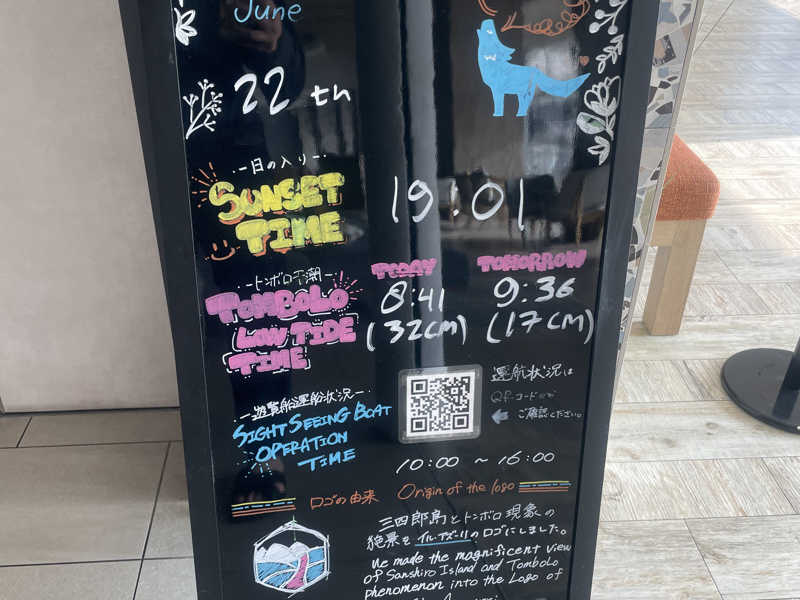 June
22 th
日の入り
SUNSET
TIME
19:01
トンボロ干潮
TOMBOLO
LOW TIDE
TIME
TODAY
8:41
(32cm)
TOMORROW
9:36
(17cm)
遊覧船運航状況
SIGHT SEEING BOAT
OPERATION
TIME
運航状況は
QRコードより
ご確認ください。
10:00 ~ 16:00
ロゴの由来 Origin of the logo
三四郎島とトンボロ現象の
絶景をイル・アズーリのロゴにしました。
We made the magnificent view
of Sanshiro Island and Tombolo
phenomenon into the Logo of